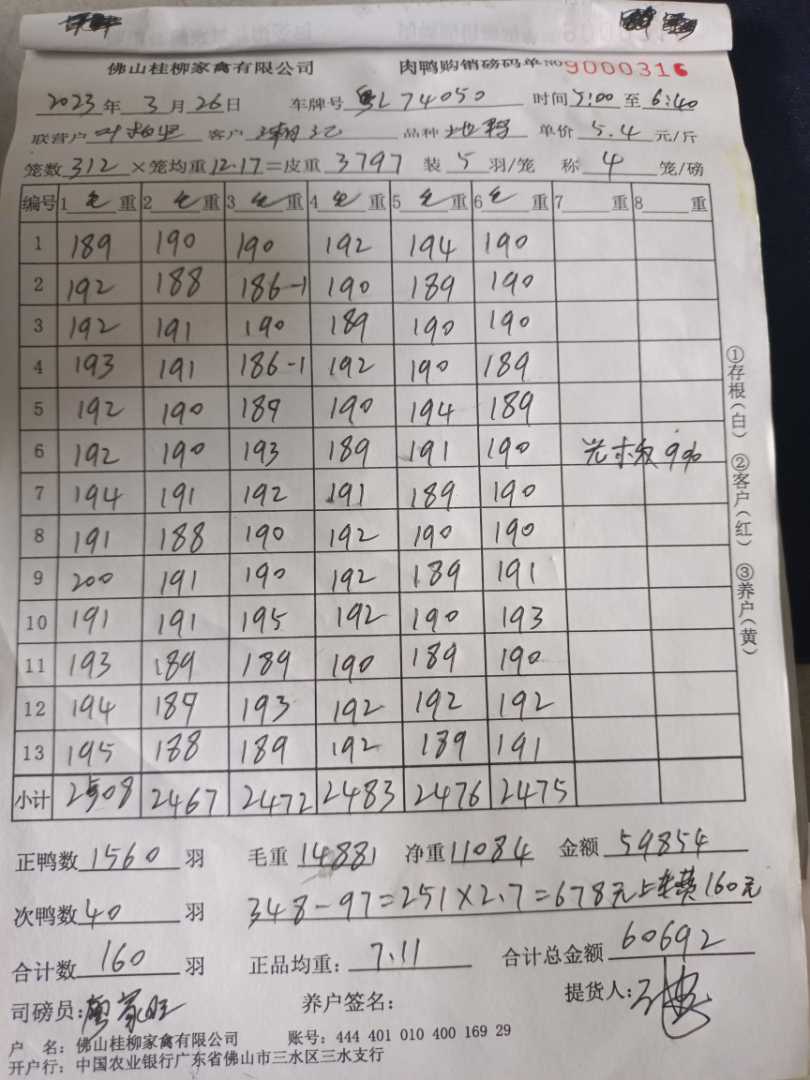 佛山桂柳家禽有限公司 肉鸭购销磅码单 NO 9000316
2023年 3月26日 车牌号 粤L 74050 时间 5:00 至 6:40
联营户 客户 品种 单价 5.4 元/斤
笼数 312 ×笼均重 12.17 =皮重 3797 装 5 羽/笼 称 4 笼/磅
编号 1 毛 重 2 毛 重 3 毛 重 4 毛 重 5 毛 重 6 毛 重 7 重 8 重
1 189 190 190 192 194 190
2 192 188 186-1 190 189 190
3 192 191 190 189 190 190
4 193 191 186-1 192 190 189
5 192 190 189 190 194 189
6 192 190 193 189 191 190 9%
7 194 191 192 191 189 190
8 191 188 190 192 190 190
9 200 191 190 192 189 191
10 191 191 195 192 190 193
11 193 189 189 190 189 190
12 194 189 193 192 192 192
13 195 188 189 192 189 191
小计 2508 2467 2472 2483 2476 2475
正鸭数 1560 羽 毛重 14881 净重 11084 金额 59854
次鸭数 40 羽 348-97=251×2.7=678元 上车费160元
合计数 160 羽 正品均重: 7.11 合计总金额 60692
司磅员: 养户签名: 提货人:
户 名: 佛山桂柳家禽有限公司 账号: 444 401 010 400 169 29
开户行: 中国农业银行广东省佛山市三水区三水支行
①存根(白) ②客户(红) ③养户(黄)